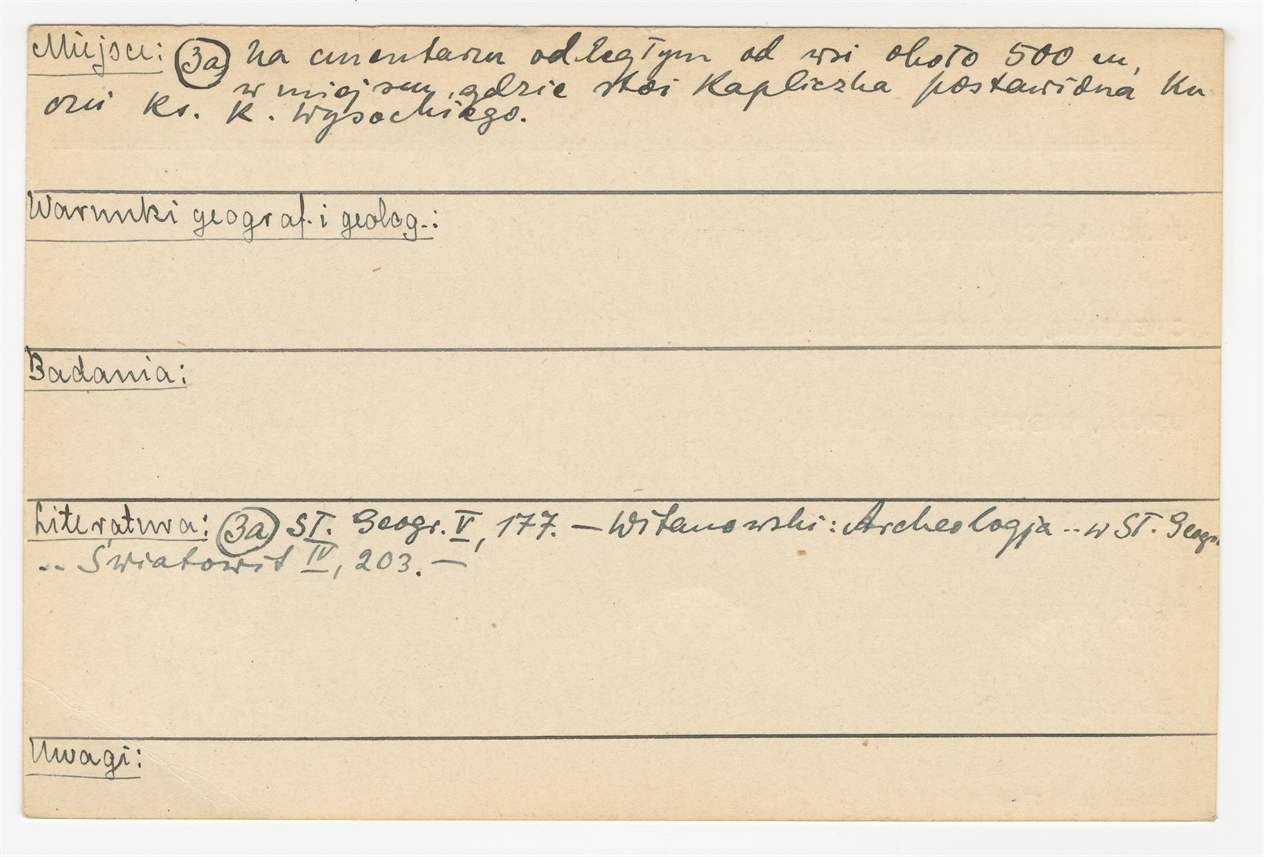 Miejsce: (3a) na cmentarzu odległym od wsi około 500 m,
w miejscu, gdzie stoi Kapliczka postawiona ku
czci ks. K. Wysockiego.
Warunki geograf. i geolog.:
Badania:
Literatura: (3a) Sł. Geogr. V, 177. – Witanowski: Archeologja .. w Sł. Geogr.
.. Światowit IV, 203. –
Uwagi: